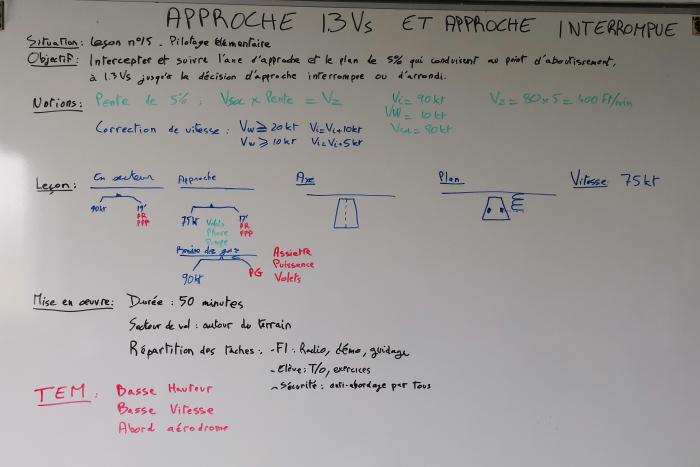 APPROCHE 1.3Vs ET APPROCHE INTERROMPUE
Situation: Leçon n°15. Pilotage élémentaire
Objectif: Intercepter et suivre l'axe d'approche et le plan de 5% qui conduisent au point d'aboutissement,
à 1.3Vs jusqu'à la décision d'approche interrompue ou d'arrondi.
Notions: Pente de 5%: Vsol x Pente = Vz Vi = 90kt Vz = 80x5 = 400 Ft/min
Vw = 10kt
Vsol = 80kt
Correction de vitesse: Vw ≥ 20kt Vi = Vi+10kt
Vw ≥ 10kt Vi = Vi+5kt
Leçon: En secteur Approche Axe Plan Vitesse 75kt
90kt 19' 75kt Volets 17'
PR Phare PR
PPP Pompe PPP
Remise de gaz Assiette
90kt PG Puissance
Volets
Mise en œuvre: Durée: 50 minutes
Secteur de vol: autour du terrain
Répartition des taches: - FI: Radio, démo, guidage
- Elève: T/O, exercices
- Sécurité: anti-abordage par tous
TEM: Basse Hauteur
Basse Vitesse
Abord aérodrome